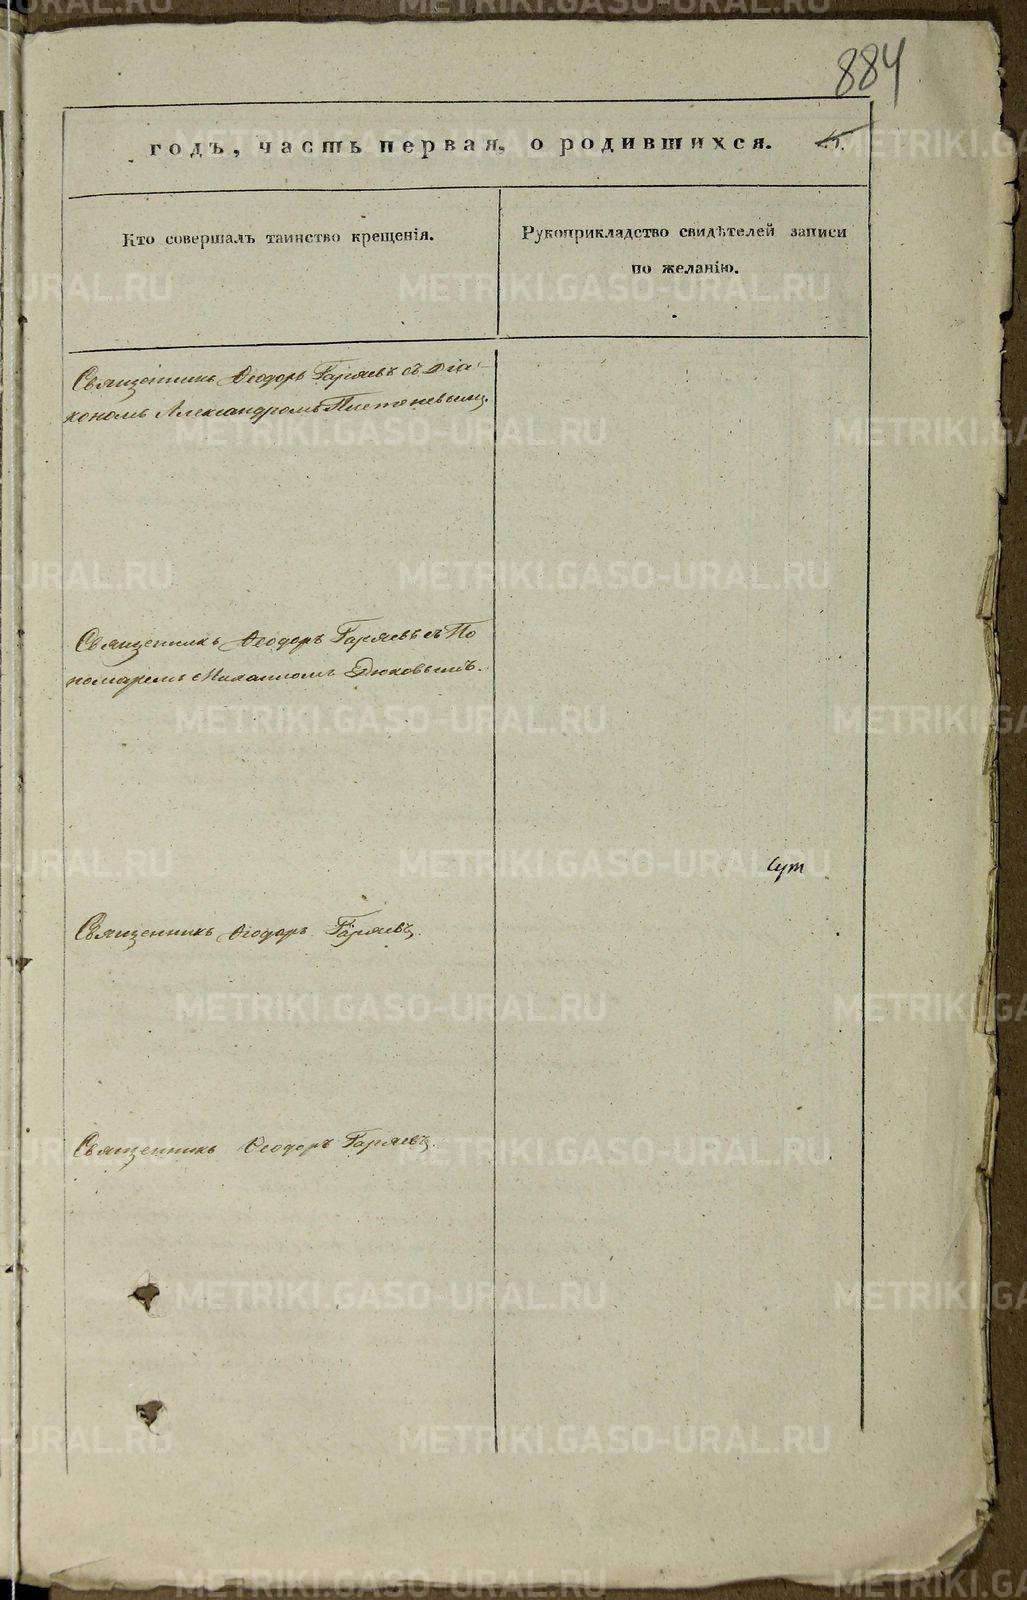 884
годъ, часть первая, о родившихся.
Кто совершалъ таинство крещенія.
Рукоприкладство свидѣтелей записи
по желанію.
Священникъ Ѳеодоръ Гаряевъ съ Діа-
кономъ Александромъ
Священникъ Ѳеодоръ Гаряевъ съ По
номаремъ Михаиломъ Дюковымъ.
Священникъ Ѳеодоръ Гаряевъ.
Священникъ Ѳеодоръ Гаряевъ.
METRIKI.GASO-URAL.RU